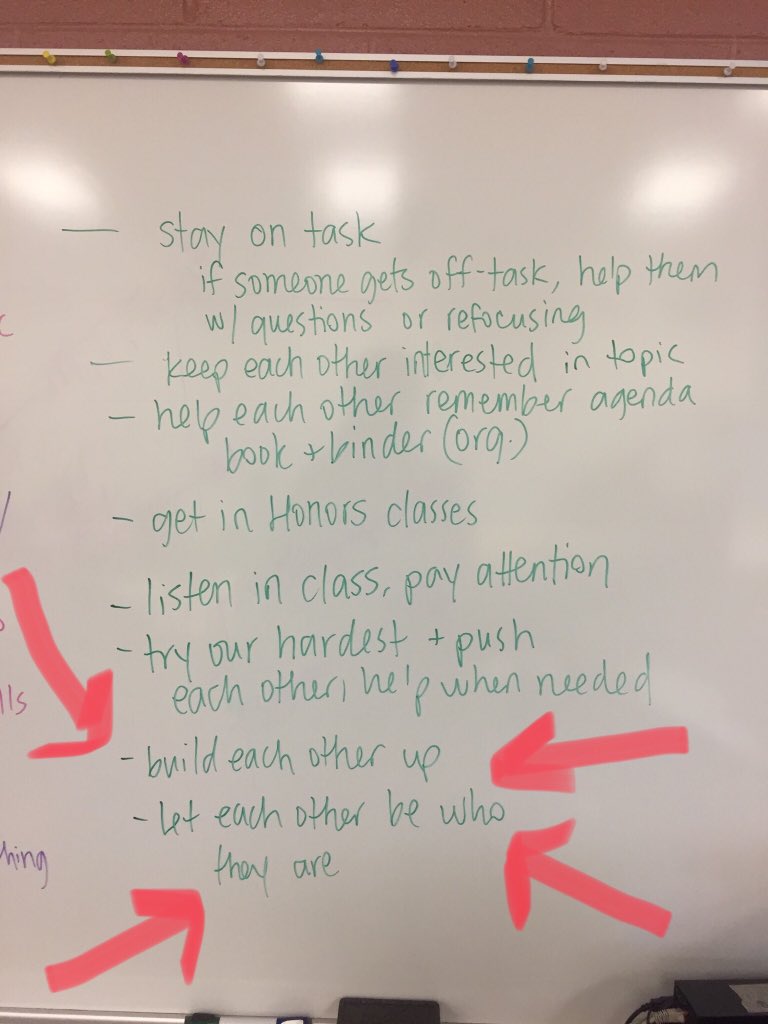 — stay on task
if someone gets off-task, help them
w/ questions or refocusing
— keep each other interested in topic
- help each other remember agenda
book + binder (org.)
- get in Honors classes
- listen in class, pay attention
- try our hardest + push
each other, help when needed
lls
- build each other up
- let each other be who
hing
they are